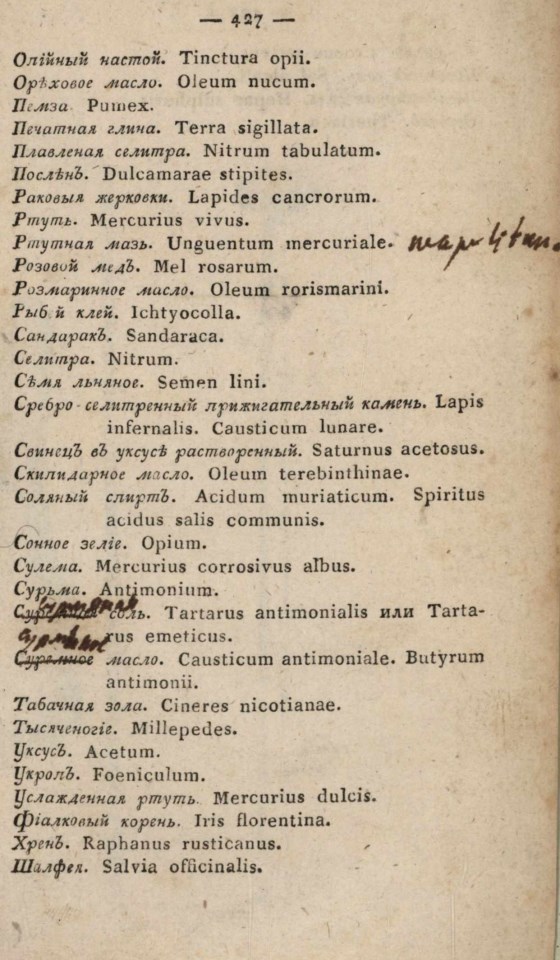 — 427 —
Олійный настой. Tinctura opii.
Орѣховое масло. Oleum nucum.
Пемза. Pumex.
Печатная глина. Terra sigillata.
Плавленая селитра. Nitrum tabulatum.
Послѣнъ. Dulcamarae stipites.
Раковыя жерковки. Lapides cancrorum.
Ртуть. Mercurius vivus.
Ртутная мазь. Unguentum mercuriale.
Розовой медъ. Mel rosarum.
Розмаринное масло. Oleum rorismarini.
Рыб й клей. Ichtyocolla.
Сандаракъ. Sandaraca.
Селитра. Nitrum.
Сѣмя льняное. Semen lini.
Сребро-селитренный прижигательный камень. Lapis
infernalis. Causticum lunare.
Свинецъ въ уксусѣ растворенный. Saturnus acetosus.
Скипидарное масло. Oleum terebinthinae.
Соляный спиртъ. Acidum muriaticum. Spiritus
acidus salis communis.
Сонное зеліе. Opium.
Сулема. Mercurius corrosivus albus.
Сурьма. Antimonium.
соль. Tartarus antimonialis или Tarta-
rus emeticus.
Суремное масло. Causticum antimoniale. Butyrum
antimonii.
Табачная зола. Cineres nicotianae.
Тысяченогіе. Millepedes.
Уксусъ. Acetum.
Укропъ. Foeniculum.
Услажденная ртуть. Mercurius dulcis.
Фіалковый корень. Iris florentina.
Хренъ. Raphanus rusticanus.
Шалфея. Salvia officinalis.